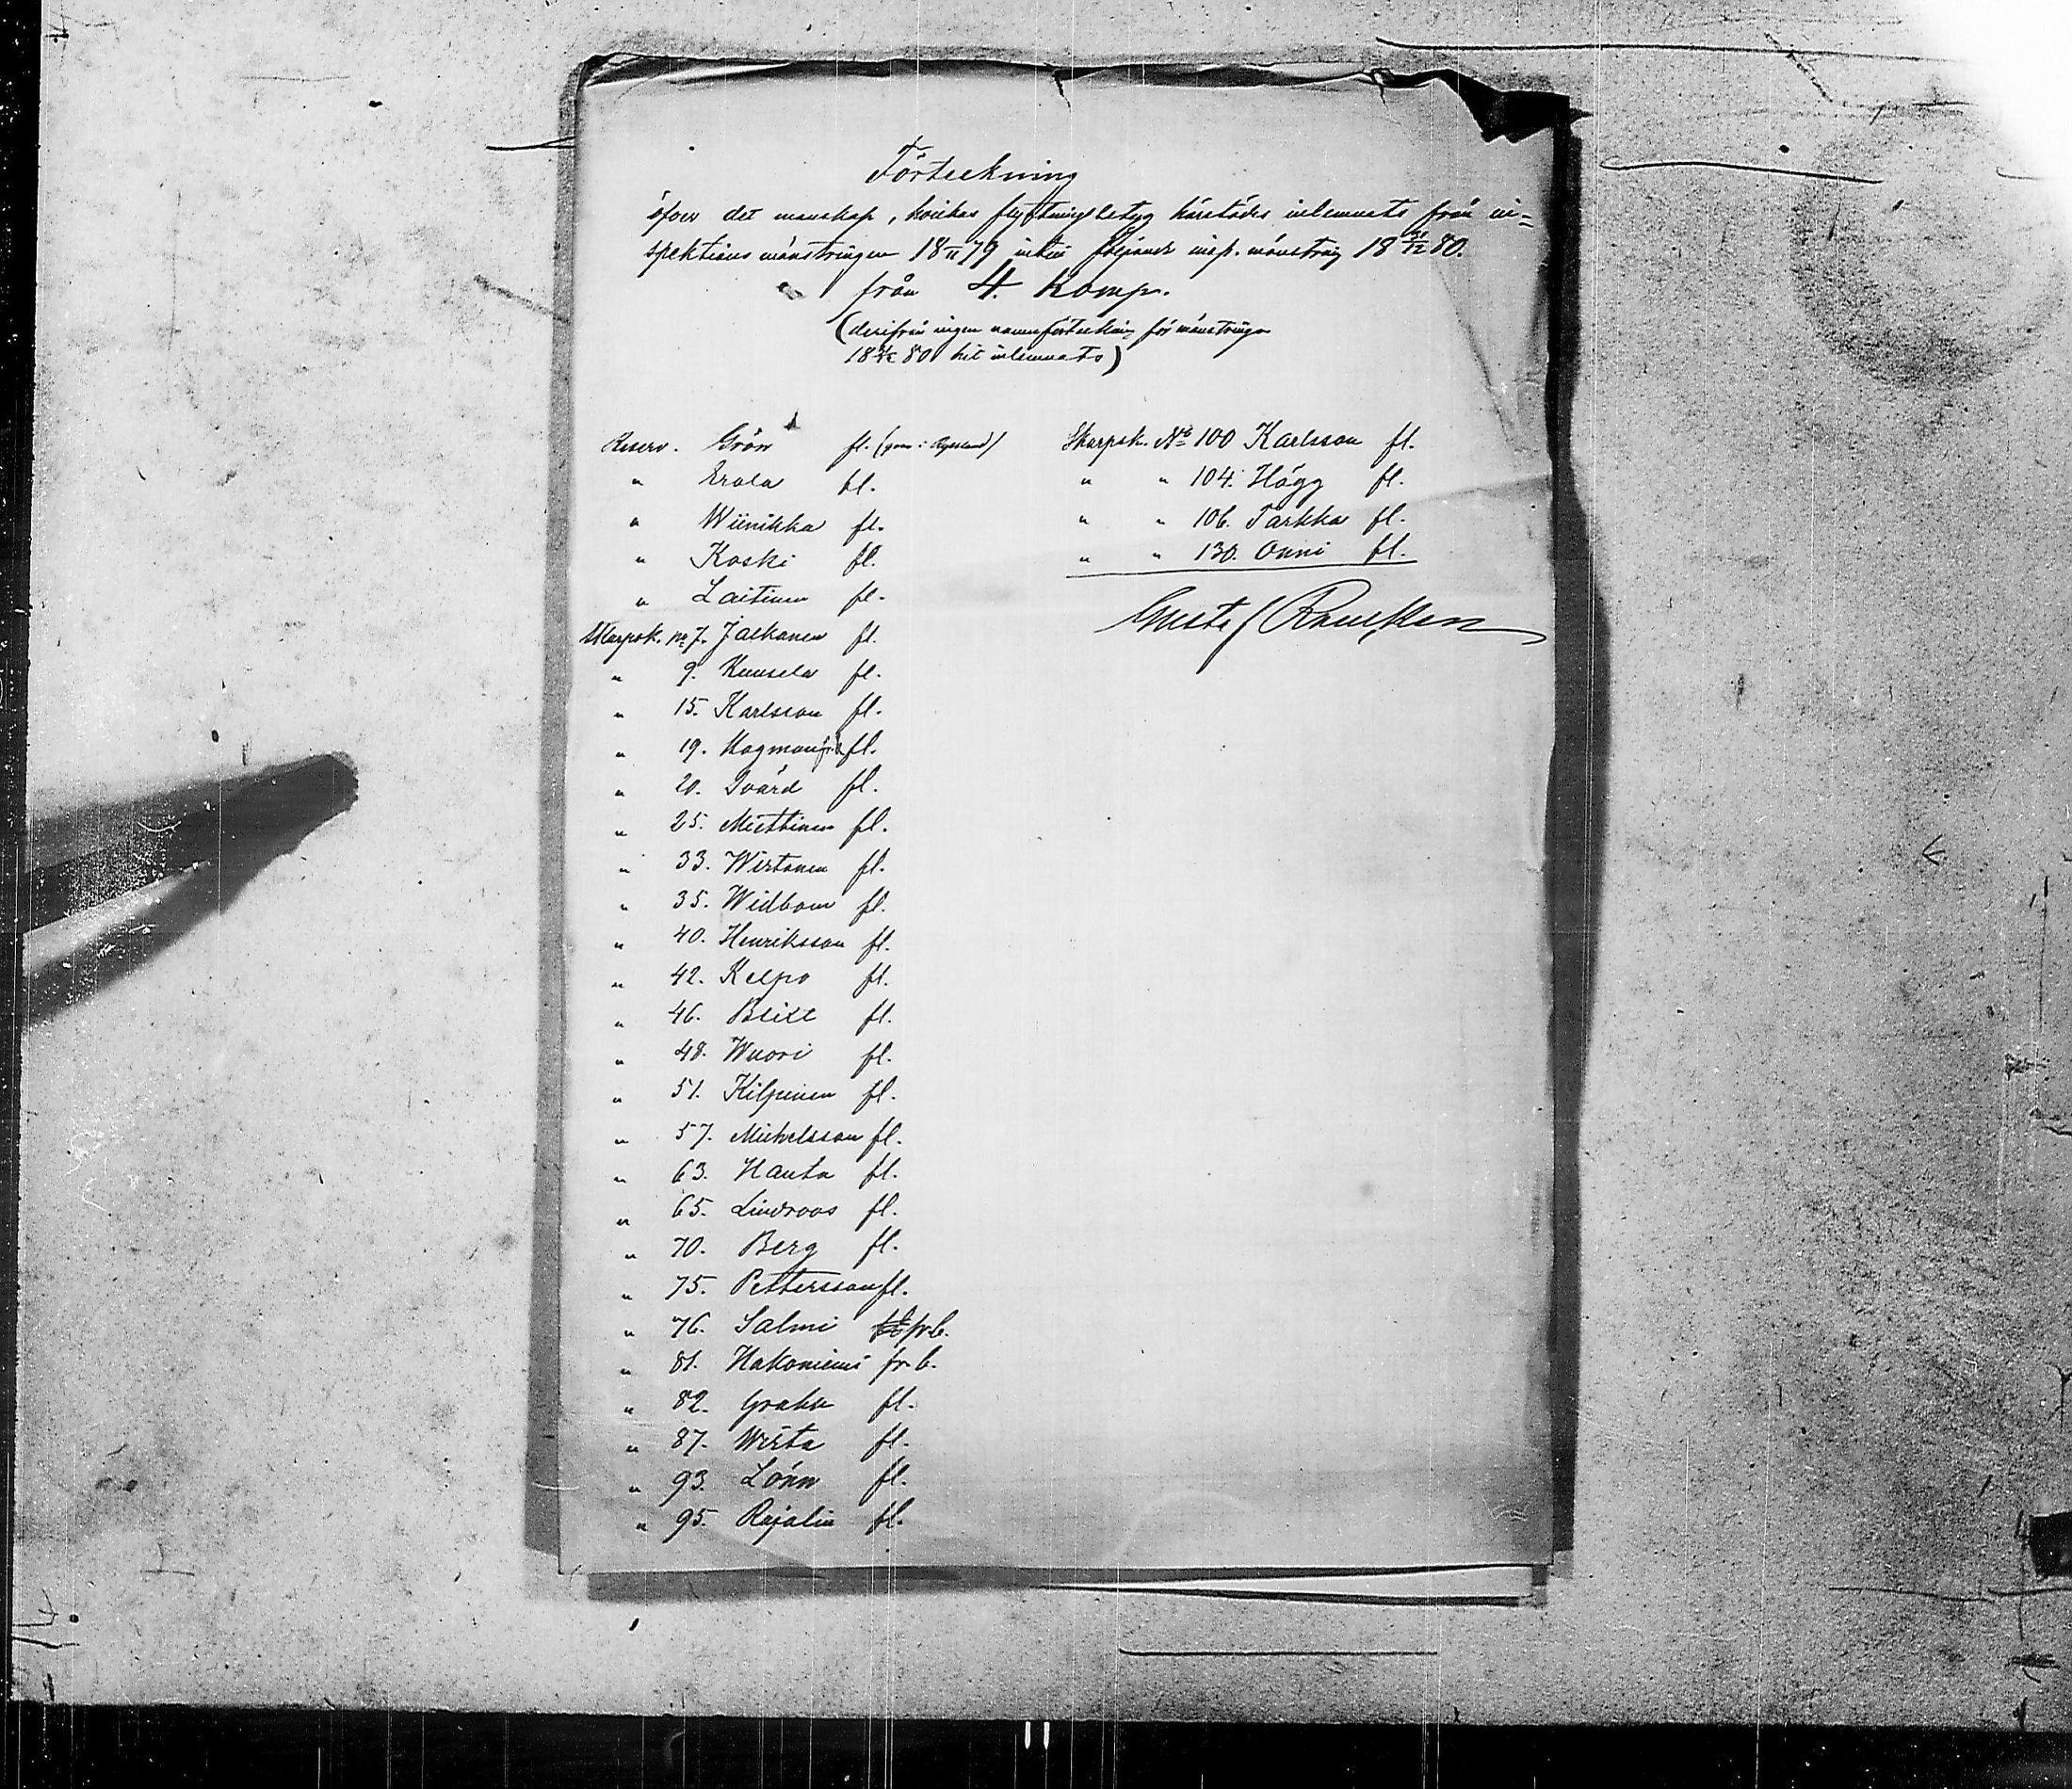 Förteckning
öfver det manskap, hvilkas flyttningsbetyg härstädes inlemnats från in-
spektions mönstringen 18 79 intill följande insp. mönstring 18 31/12 80.
från 4. Komp.
(derifrån ingen namnförteckning för mönstringen
18 80 hit inlemnats)
Reserv. Grön fl.
" Erola fl.
" Wiinikka fl.
" Koski fl.
" Laitinen fl.
Skarpsk. No 7. Jalkanen fl.
" 9. Kuusela fl.
" 15. Karlsson fl.
" 19. Hagman fl.
" 20. Svärd fl.
" 25. Miettinen fl.
" 33. Wirtanen fl.
" 35. Widbom fl.
" 40. Henriksson fl.
" 42. Kelpo fl.
" 46. Blixt fl.
" 48. Wuori fl.
" 51. Kilpinen fl.
" 57. Michelsson fl.
" 63. Hauta fl.
" 65. Lindroos fl.
" 70. Berg fl.
" 75. Pettersson fl.
" 76. Salmi fr.b.
" 81. Hakoniemi fr.b.
" 82. Grahn fl.
" 87. Wirta fl.
" 93. Lönn fl.
" 95. Rajalin fl.
Skarpsk. No 100 Karlsson fl.
" " 104. Hägg fl.
" " 106. Tarkka fl.
" " 130. Onni fl.
Gustaf